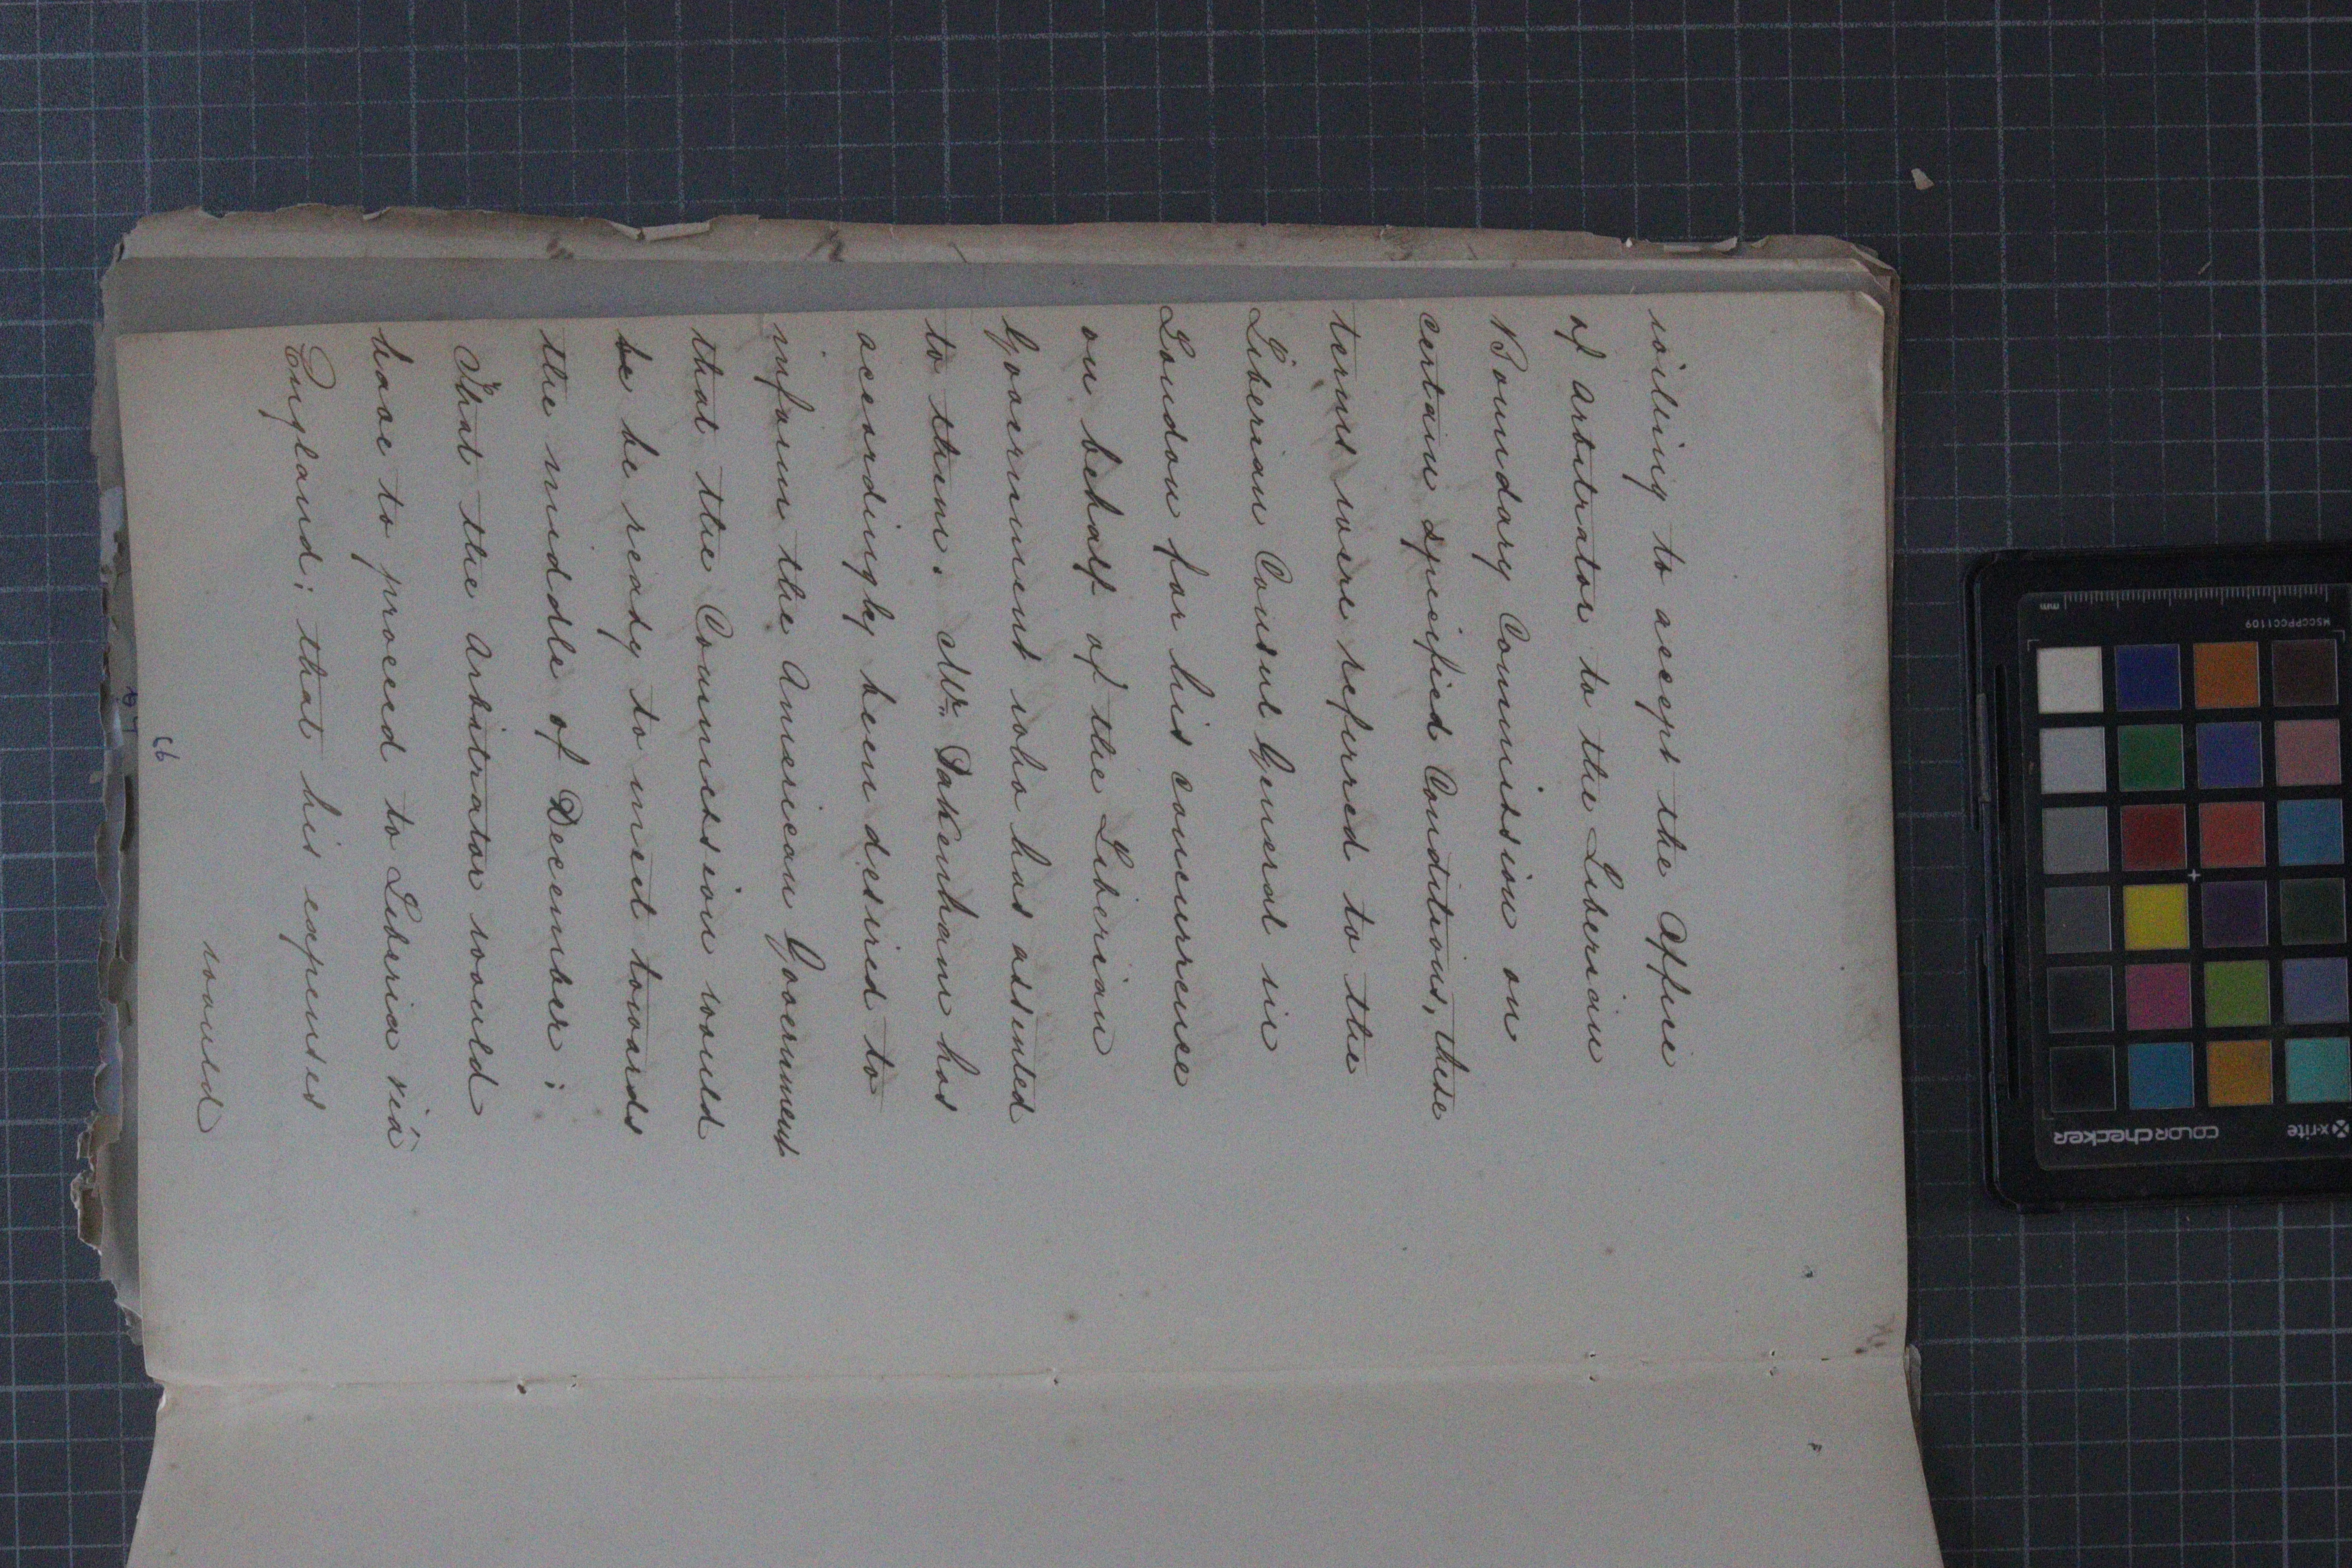 willing to accept the Office
of Arbitrator to the Liberian
Boundary Commission on
certain specified Conditions, these
terms were referred to the
Liberian Consul General in
London for his concurrence
on behalf of the Liberian
Government who has assented
to them. Mr. Pakenham has
accordingly been desired to
inform the American Government
that the Commission would
be be ready to meet towards
the middle of December;
That the Arbitrator would
have to proceed to Liberia viâ
England; that his expenses
would
MSCCPPCC1109
mm
x-rite
colorchecker